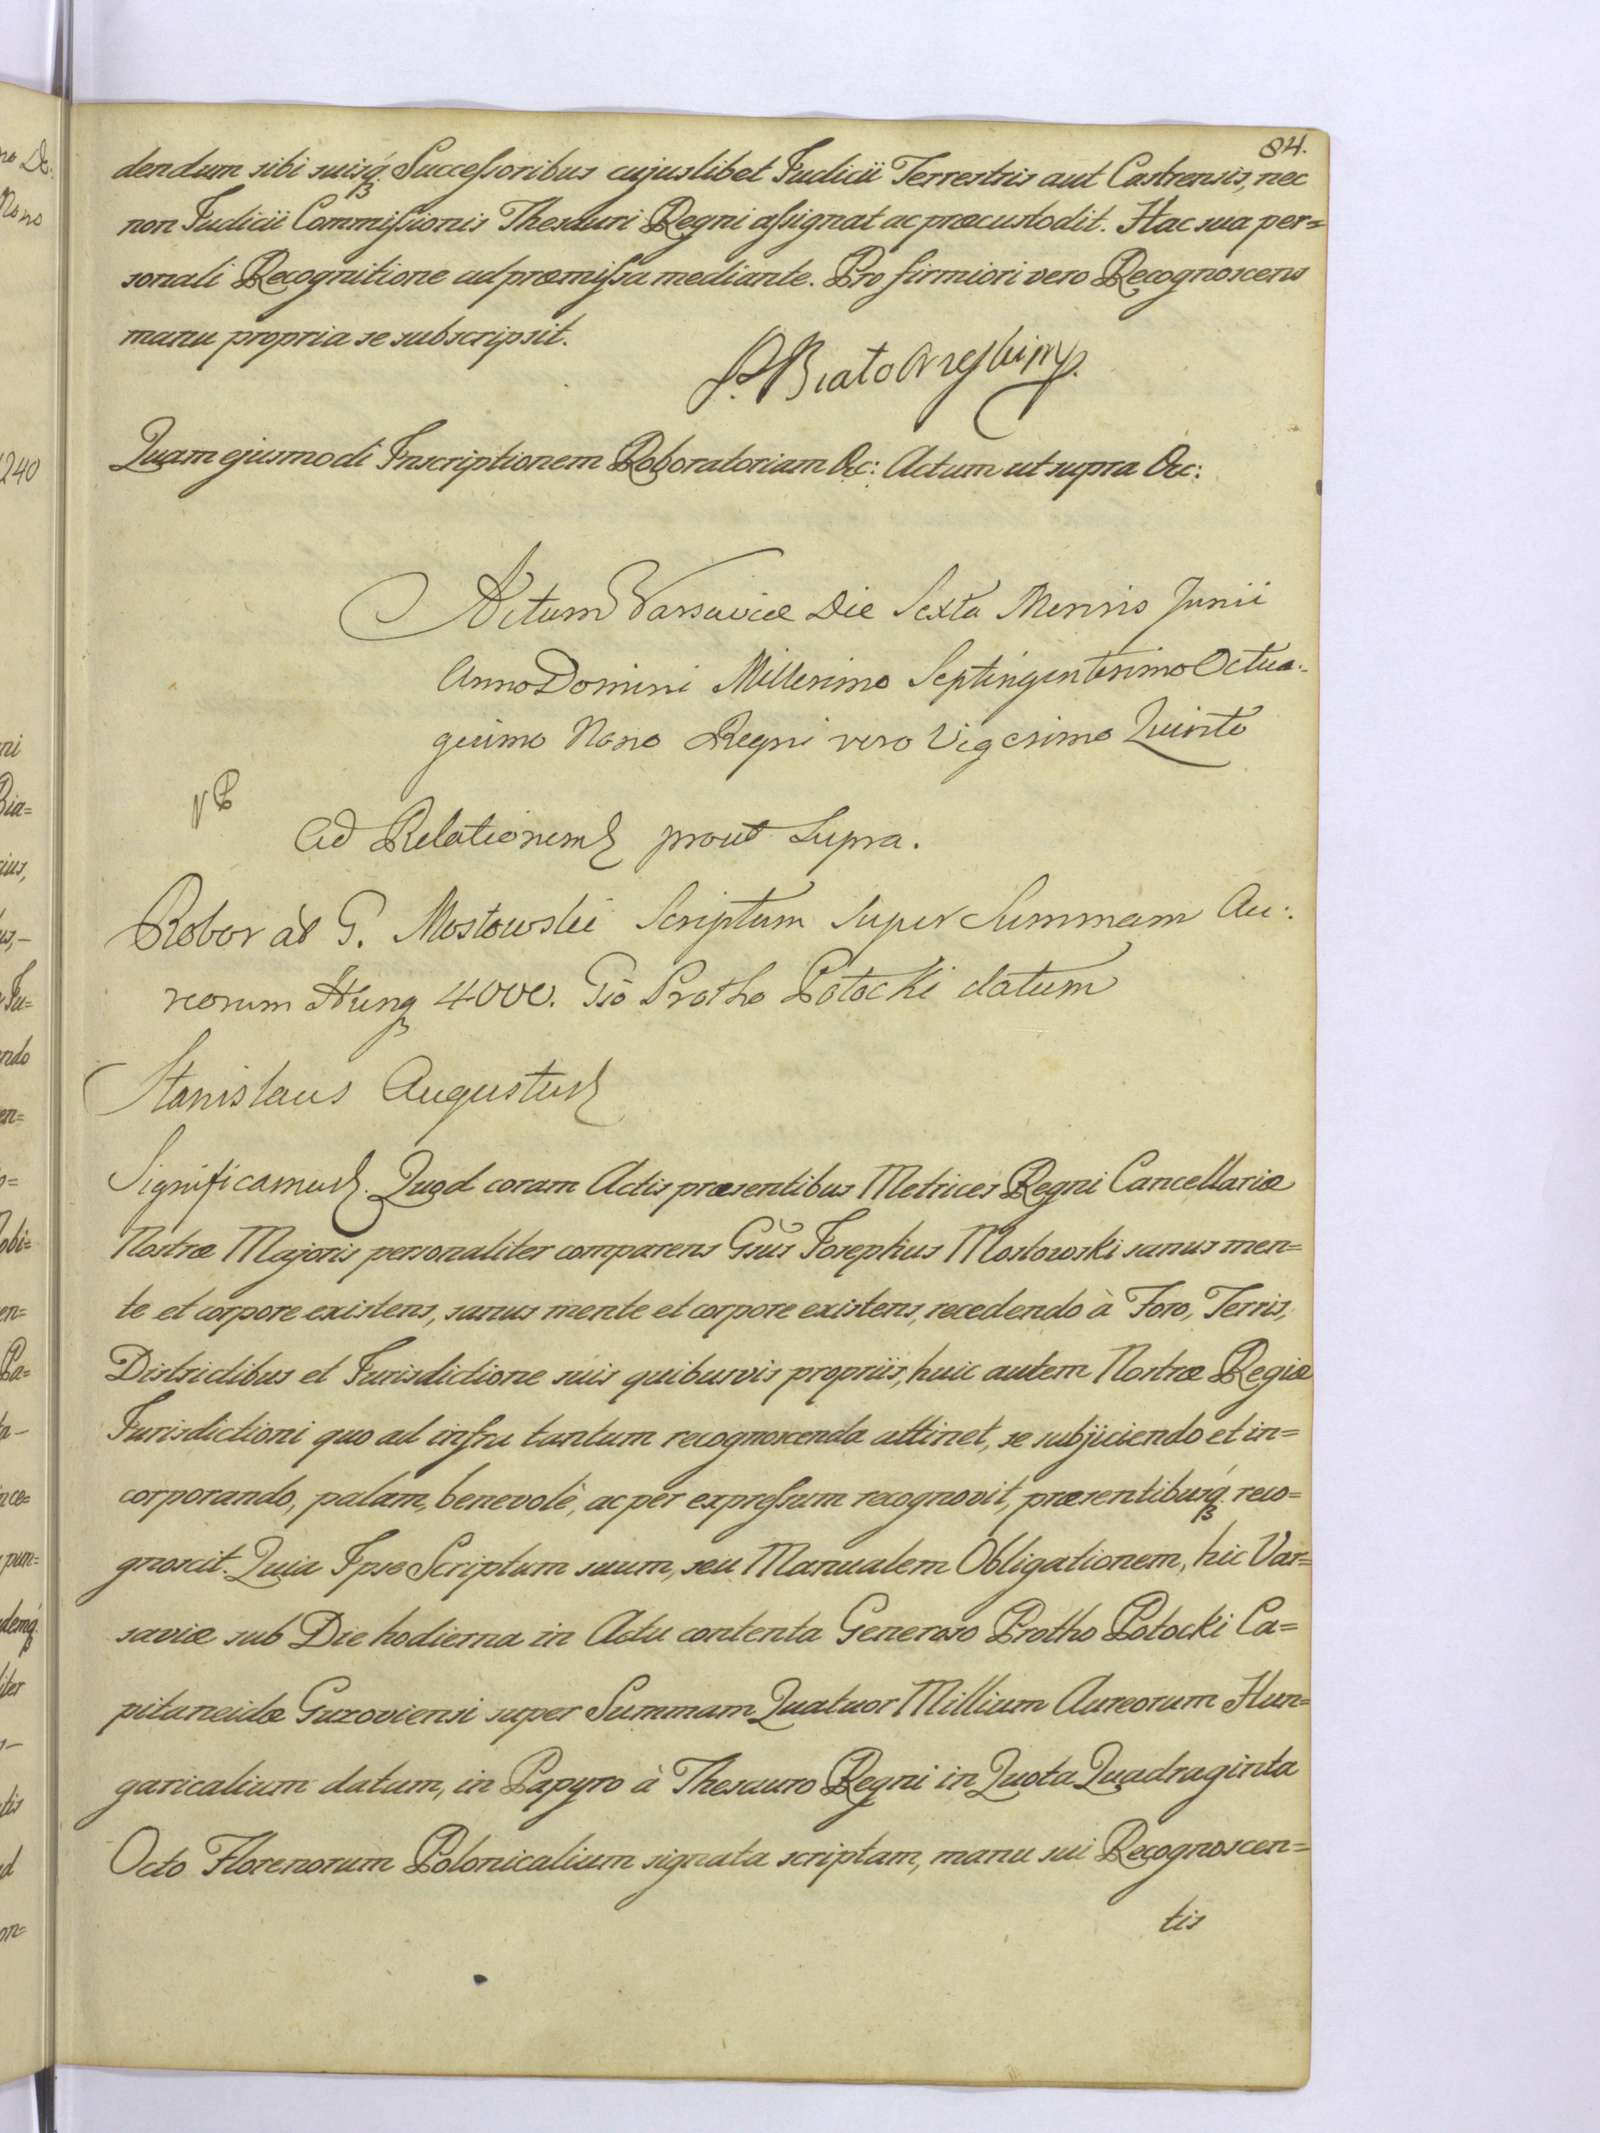 84.
dendum sibi suisq́ Successoribus cujuslibet Judicii Terrestris aut Castrensis, nec
non Judicii Commissionis Thesauri Regni assignat ac præcustodit. Hac sua per=
sonali Recognitione ad præmissa mediante. Pro firmiori vero Recognoscens
manu propria se subscripsit.
Quam ejusmodi Inscriptionem Roboratoriam &c: Actum ut supra &c:
Actum Varsaviæ Die Sexta Mensis Junii
Anno Domini Millesimo Septingentesimo Octua-
gesimo Nono Regni vero Vigesimo Quinto
Ad Relationem prout Supra.
Robor ab G. Mostowski Scriptum super Summam Au:
reorum Hung 4000. Gso Protho Potocki datum
Stanislaus Augustus
Significamus. Quod coram Actis præsentibus Metrices Regni Cancellariæ
Nostræ Majoris personaliter comparens Gsus Josephus Mostowski sanus men=
te et corpore existens, sanus mente et corpore existens, recedendo à Foro, Terris,
Districtibus et Jurisdictione suis quibusvis propriis, huic autem Nostræ Regiæ
Jurisdictioni quo ad infra tantum recognoscenda attinet, se subjiciendo et in=
corporando, palam, benevolè, ac per expressum recognovit, præsentibusq́ reco=
gnoscit. Quia Ipse Scriptum suum, seu Manualem Obligationem, hic Var=
saviæ sub Die hodierna in Actu contenta Generoso Protho Potocki Ca=
pitaneidæ Guzoviensi super Summam Quatuor Millium Aureorum Hun=
garicalium datum, in Papyro à Thesauro Regni in Quota Quadraginta
Octo Florenorum Polonicalium signata scriptam, manu sui Recognoscen=
tis